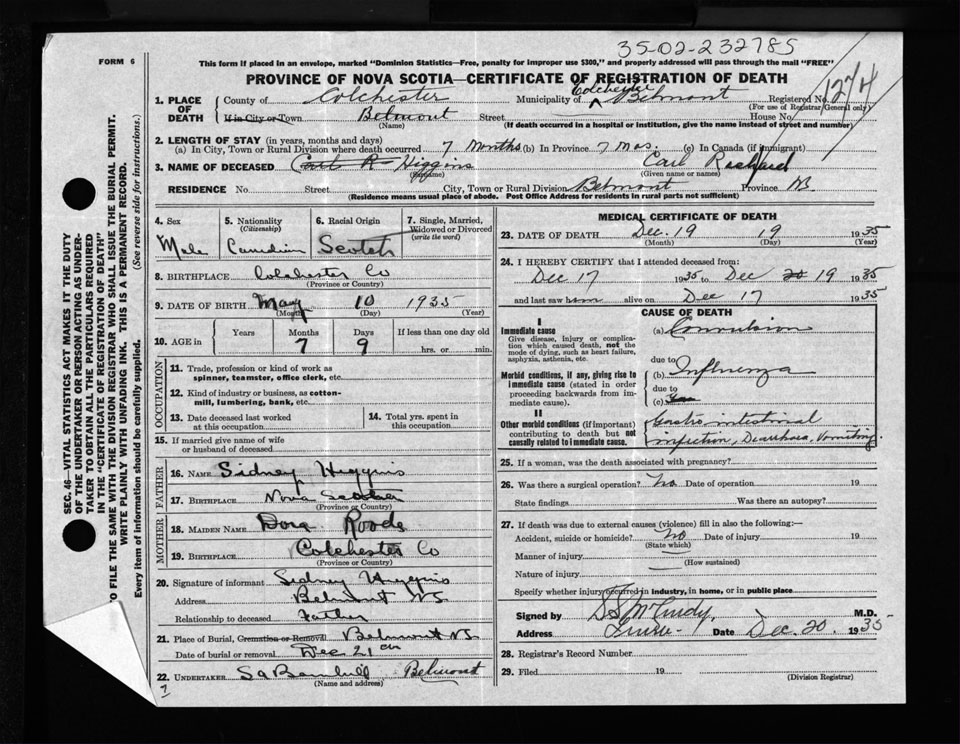 35-02-232785
1274
FORM 6
This form if placed in an envelope, marked "Dominion Statistics—Free, penalty for improper use $300," and properly addressed will pass through the mail "FREE"
PROVINCE OF NOVA SCOTIA—CERTIFICATE OF REGISTRATION OF DEATH
1. PLACE OF DEATH
County of Colchester Municipality of Colchester Belmont Registered No.
(For use of Registrar General only)
If in City or Town Belmont Street House No.
(Name) (If death occurred in a hospital or institution, give the name instead of street and number)
2. LENGTH OF STAY (in years, months and days)
(a) In City, Town or Rural Division where death occurred 7 Months (b) In Province 7 Mos. (c) In Canada (if immigrant)
3. NAME OF DECEASED Carl R Higgins Carl Richard
(Surname) (Given name or names)
RESIDENCE No Street City, Town or Rural Division Belmont Province NS
(Residence means usual place of abode. Post Office Address for residents in rural parts not sufficient)
4. Sex
Male
5. Nationality
(Citizenship)
Canadian
6. Racial Origin
Scotch
7. Single, Married, Widowed or Divorced
(write the word)
8. BIRTHPLACE Colchester Co
(Province or Country)
9. DATE OF BIRTH May 10 1935
(Month) (Day) (Year)
10. AGE in
Years Months Days If less than one day old
7 9 hrs. or min.
OCCUPATION
11. Trade, profession or kind of work as
spinner, teamster, office clerk, etc.
12. Kind of industry or business, as cotton-
mill, lumbering, bank, etc.
13. Date deceased last worked
at this occupation
14. Total yrs. spent in
this occupation
15. If married give name of wife
or husband of deceased
FATHER
16. NAME Sidney Higgins
17. BIRTHPLACE Nova Scotia
(Province or Country)
MOTHER
18. MAIDEN NAME Dora Roode
19. BIRTHPLACE Colchester Co
(Province or Country)
20. Signature of informant Sidney Higgins
Address Belmont NS
Relationship to deceased Father
21. Place of Burial, Cremation or Removal Belmont NS
Date of burial or removal Dec 21
22. UNDERTAKER Belmont
(Name and address)
MEDICAL CERTIFICATE OF DEATH
23. DATE OF DEATH Dec. 19 19 1935
(Month) (Day) (Year)
24. I HEREBY CERTIFY that I attended deceased from:
Dec 17 1935 to Dec 20 19 1935
and last saw him alive on Dec 17 1935
CAUSE OF DEATH
I
Immediate cause
Give disease, injury or complica-
tion which caused death, not the
mode of dying, such as heart failure,
asphyxia, asthenia, etc.
(a) Convulsion
due to
Morbid conditions, if any, giving rise to
immediate cause (stated in order
proceeding backwards from im-
mediate cause).
(b) Influenza
due to
(c)
II
Other morbid conditions (if important)
contributing to death but not
causally related to immediate cause.
Gastro intestinal
infection, Diarrhoea, Vomiting
25. If a woman, was the death associated with pregnancy?
26. Was there a surgical operation? No Date of operation 19
State findings Was there an autopsy?
27. If death was due to external causes (violence) fill in also the following:—
Accident, suicide or homicide? No Date of injury 19
(State which)
Manner of injury
(How sustained)
Nature of injury
Specify whether injury occurred in industry, in home, or in public place
Signed by McCurdy, M.D.
Address Truro Date Dec. 20. 1935
28. Registrar's Record Number
29. Filed 19
(Division Registrar)
SEC. 46—VITAL STATISTICS ACT MAKES IT THE DUTY
OF THE UNDERTAKER OR PERSON ACTING AS UNDER-
TAKER TO OBTAIN ALL THE PARTICULARS REQUIRED
IN THE "CERTIFICATE OF REGISTRATION OF DEATH"
TO FILE THE SAME WITH THE DIVISION REGISTRAR WHO SHALL ISSUE THE BURIAL PERMIT.
WRITE PLAINLY WITH UNFADING INK. THIS IS A PERMANENT RECORD.
Every item of information should be carefully supplied. (See reverse side for instructions.)